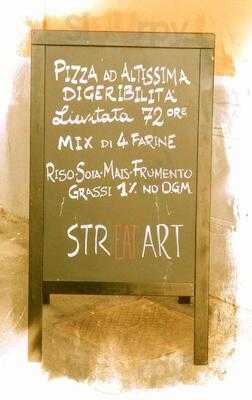 PIZZA AD ALTISSIMA
DIGERIBILITA'
Lievitata 72 ORE
MIX DI 4 FARINE
RISO-SOIA-MAIS-FRUMENTO
GRASSI 1% NO OGM
STREATART